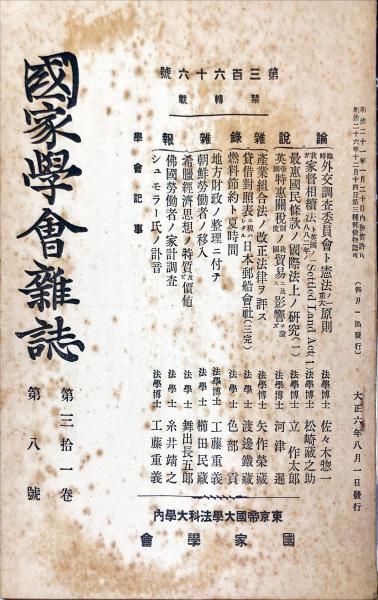 明治二十六年十二月十四日第三種郵便物認可
(毎月一回發行)
大正六年八月一日發行
第三百六十六號
禁轉載
論說
臨時外交調査委員會ト憲法ノ一大原則
法學博士 佐々木惣一
我ガ家督相續法ト英國ノ一八八二年ノ Settled Land Act
法學博士 松崎藏之助
最惠國民條款ノ國際法上ノ研究(二)
法學博士 立作太郎
法學博士 河津暹
雜錄
產業組合法ノ改正法律ヲ評ス
法學博士 矢作榮藏
貸借對照表ニ現ハレタル日本郵船會社(三、完)
法學士 渡邊鐵藏
燃料節約ト夏時間
法學士 色部貢
雜報
地方財政ノ整理ニ付テ
法學博士 工藤重義
朝鮮勞働者ノ移入
法學士 櫛田民藏
希臘經濟思想ノ特質ト價値
法學士 舞出長五郎
佛國勞働者ノ家計調査
法學士 糸井靖之
シュモラー氏ノ訃音
法學博士 工藤重義
學會記事
東京帝國大學法科大學內
國家學會
國家學會雜誌
第三拾一卷
第八號